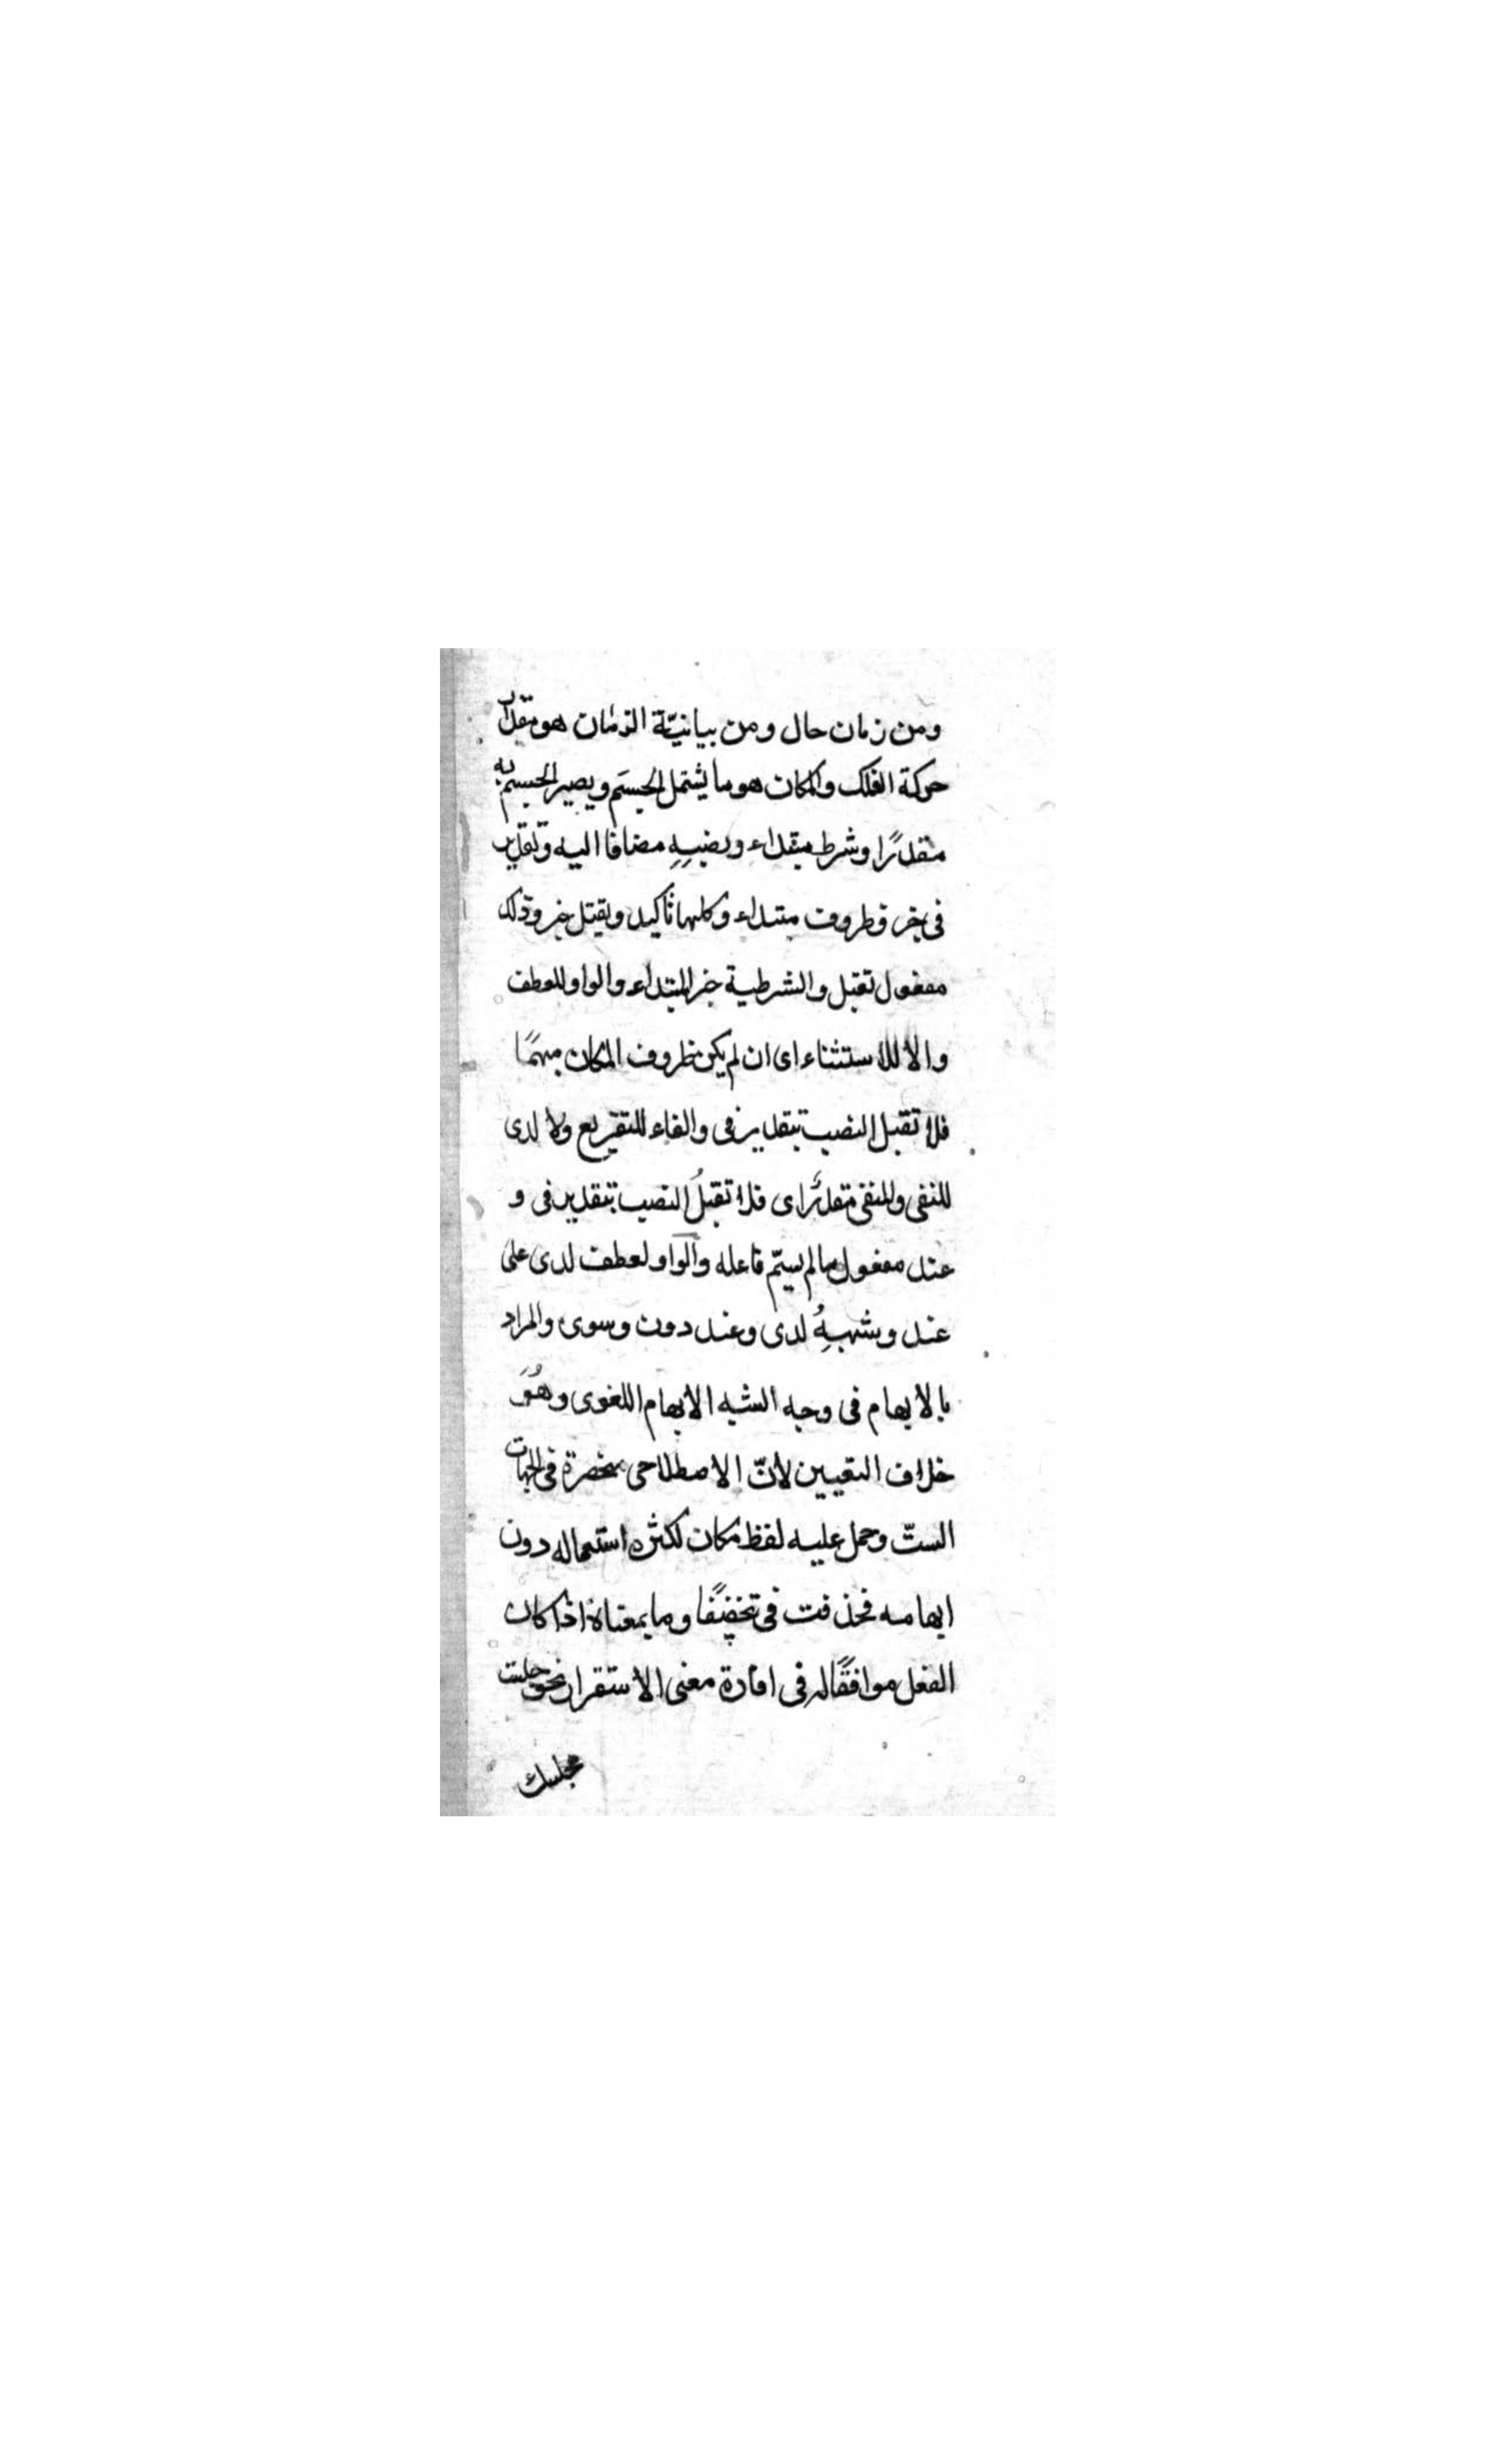 ومن زمان حال ومن بيانيّة الزمان هو مقدار
حركة الفلك والمكان هو ما يشتمل الجسم ويصير الجسم به
متقدرًا وشرط مبتداء ونصبِهِ مضافا اليه وتقدير
فى خبر وظروف مبتداء وكلها تأكيد ويقبل خبر وذلك
مفعول تقبل والشرطية خبر المبتداء والواو للعطف
والا للاستثناء اى ان لم يكن ظروف المكان مبهمًا
فلا تقبل النصب بتقدير فى والفاء للتفريع ولا لدى
للنفى والمنفى مقدرًا اى فلا تقبلُ النصب بتقدير فى و
عند مفعول مالم يسمّ فاعله والواو لعطف لدى على
عند وشبهِهُ لدى وعند دون وسوى والمراد
بالابهام فى وجه الشبه الابهام اللغوى وهُوَ
خلاف التعيين لانّ الاصطلاحى منحصرة فى الجهات
الستّ وحمل عليه لفظ مكان لكثره استعماله دون
ابهامه فحذفت فى تخفيفًا وما بمعناة اذا كان
الفعل موافقًا له فى افادة معنى الاستقرار نحو جلست
مجلسك